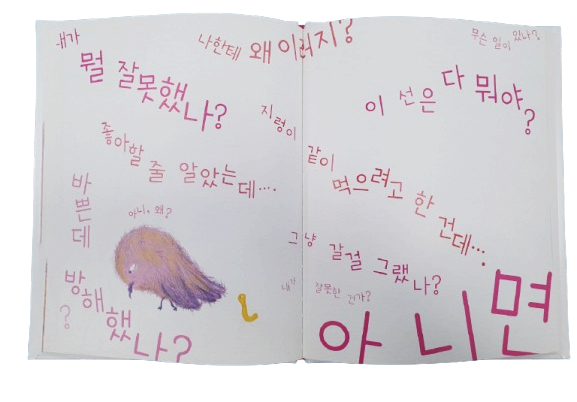 내가
뭘 잘못했나?
나한테 왜 이러지?
무슨 일이 있나?
이 선은 다 뭐야?
지렁이 같이 먹으려고 한 건데...
좋아할 줄 알았는데....
바쁜데
방해했나?
아니, 왜?
그냥 갈걸 그랬나?
내가 잘못한 건가?
아니면